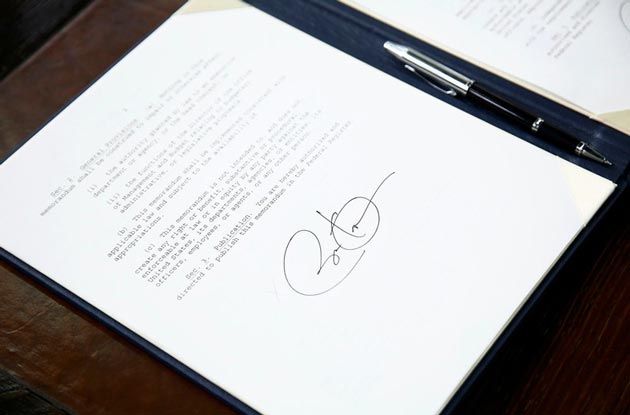 Sec. 2. General Provisions. (a) Nothing in this
memorandum shall be construed to impair or otherwise affect:
(i) the authority granted by law to an executive
department or agency, or the head thereof; or
(ii) the functions of the Director of the Office
of Management and Budget relating to budgetary,
administrative, or legislative proposals.
(b) This memorandum shall be implemented consistent with
applicable law and subject to the availability of
appropriations.
(c) This memorandum is not intended to, and does not,
create any right or benefit, substantive or procedural,
enforceable at law or in equity by any party against the
United States, its departments, agencies, or entities, its
officers, employees, or agents, or any other person.
Sec. 3. Publication. You are hereby authorized and
directed to publish this memorandum in the Federal Register.